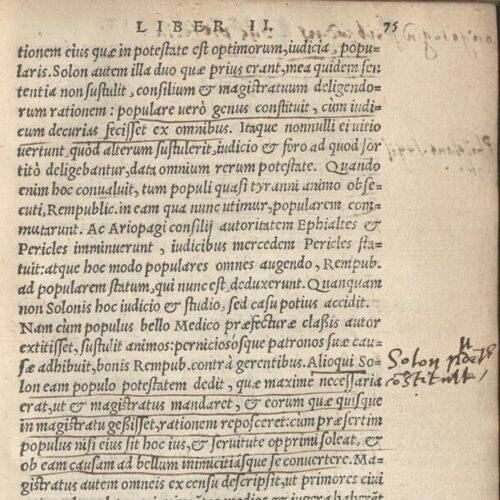 LIBER II. 75
tionem eius quæ in potestate est optimorum, iudicia, popu-
laris. Solon autem illa duo quæ prius erant, mea quidem sen
tentia non sustulit, consilium & magistratuum deligendo-
rum rationem: populare verò genus constituit, cùm iudi-
cum decurias fecisset ex omnibus. Itaque nonnulli ei vitio
vertunt, quòd alterum sustulerit, iudicio & foro ad quod sor
titò deligebantur, data omnium rerum potestate. Quando
enim hoc conualuit, tum populi quasi tyranni animo obse-
cuti, Rempublic. in eam qua nunc utimur, popularem com-
mutarunt. Ac Ariopagi consilij autoritatem Ephialtes &
Pericles imminuerunt, iudicibus mercedem Pericles sta-
tuit: atque hoc modo populares omnes augendo, Rempub.
ad popularem statum, qui nunc est, deduxerunt. Quanquam
non Solonis hoc iudicio & studio, sed casu potius accidit.
Nam cum populus bello Medico præfecturæ classis autor
extitisset, sustulit animos: perniciososque patronos suæ cau-
sæ adhibuit, bonis Rempub. contrà gerentibus. Alioqui So-
lon eam populo potestatem dedit, quæ maximè necessaria
erat, ut & magistratus mandaret, & eorum quæ quisque
in magistratu gessisset, rationem reposceret: cùm præsertim
populus nisi eius sit hoc ius, & seruitute opprimi soleat, &
ob eam causam ad bellum inimicitiasque se conuertere. Ma-
gistratus autem omneis ex censu descripsit, ut primores ciui
Solon